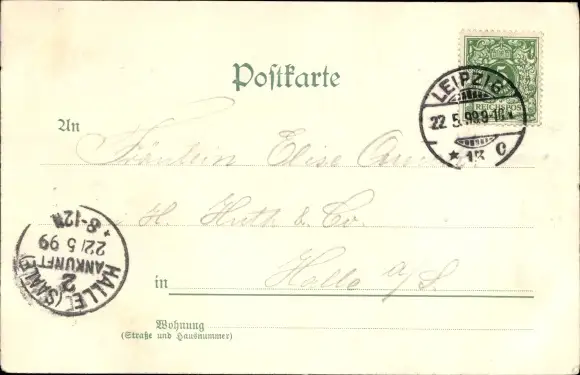 Postkarte
5
REICHSPOST
LEIPZIG
22 5.99 9-10V
* 13 c
An
Fräulein Elise
H. Huth & Co.
in Halle a/S.
HALLE (SAALE)
2
ANKUNFT
22/5 99
* 8-12N
Wohnung
(Straße und Hausnummer)